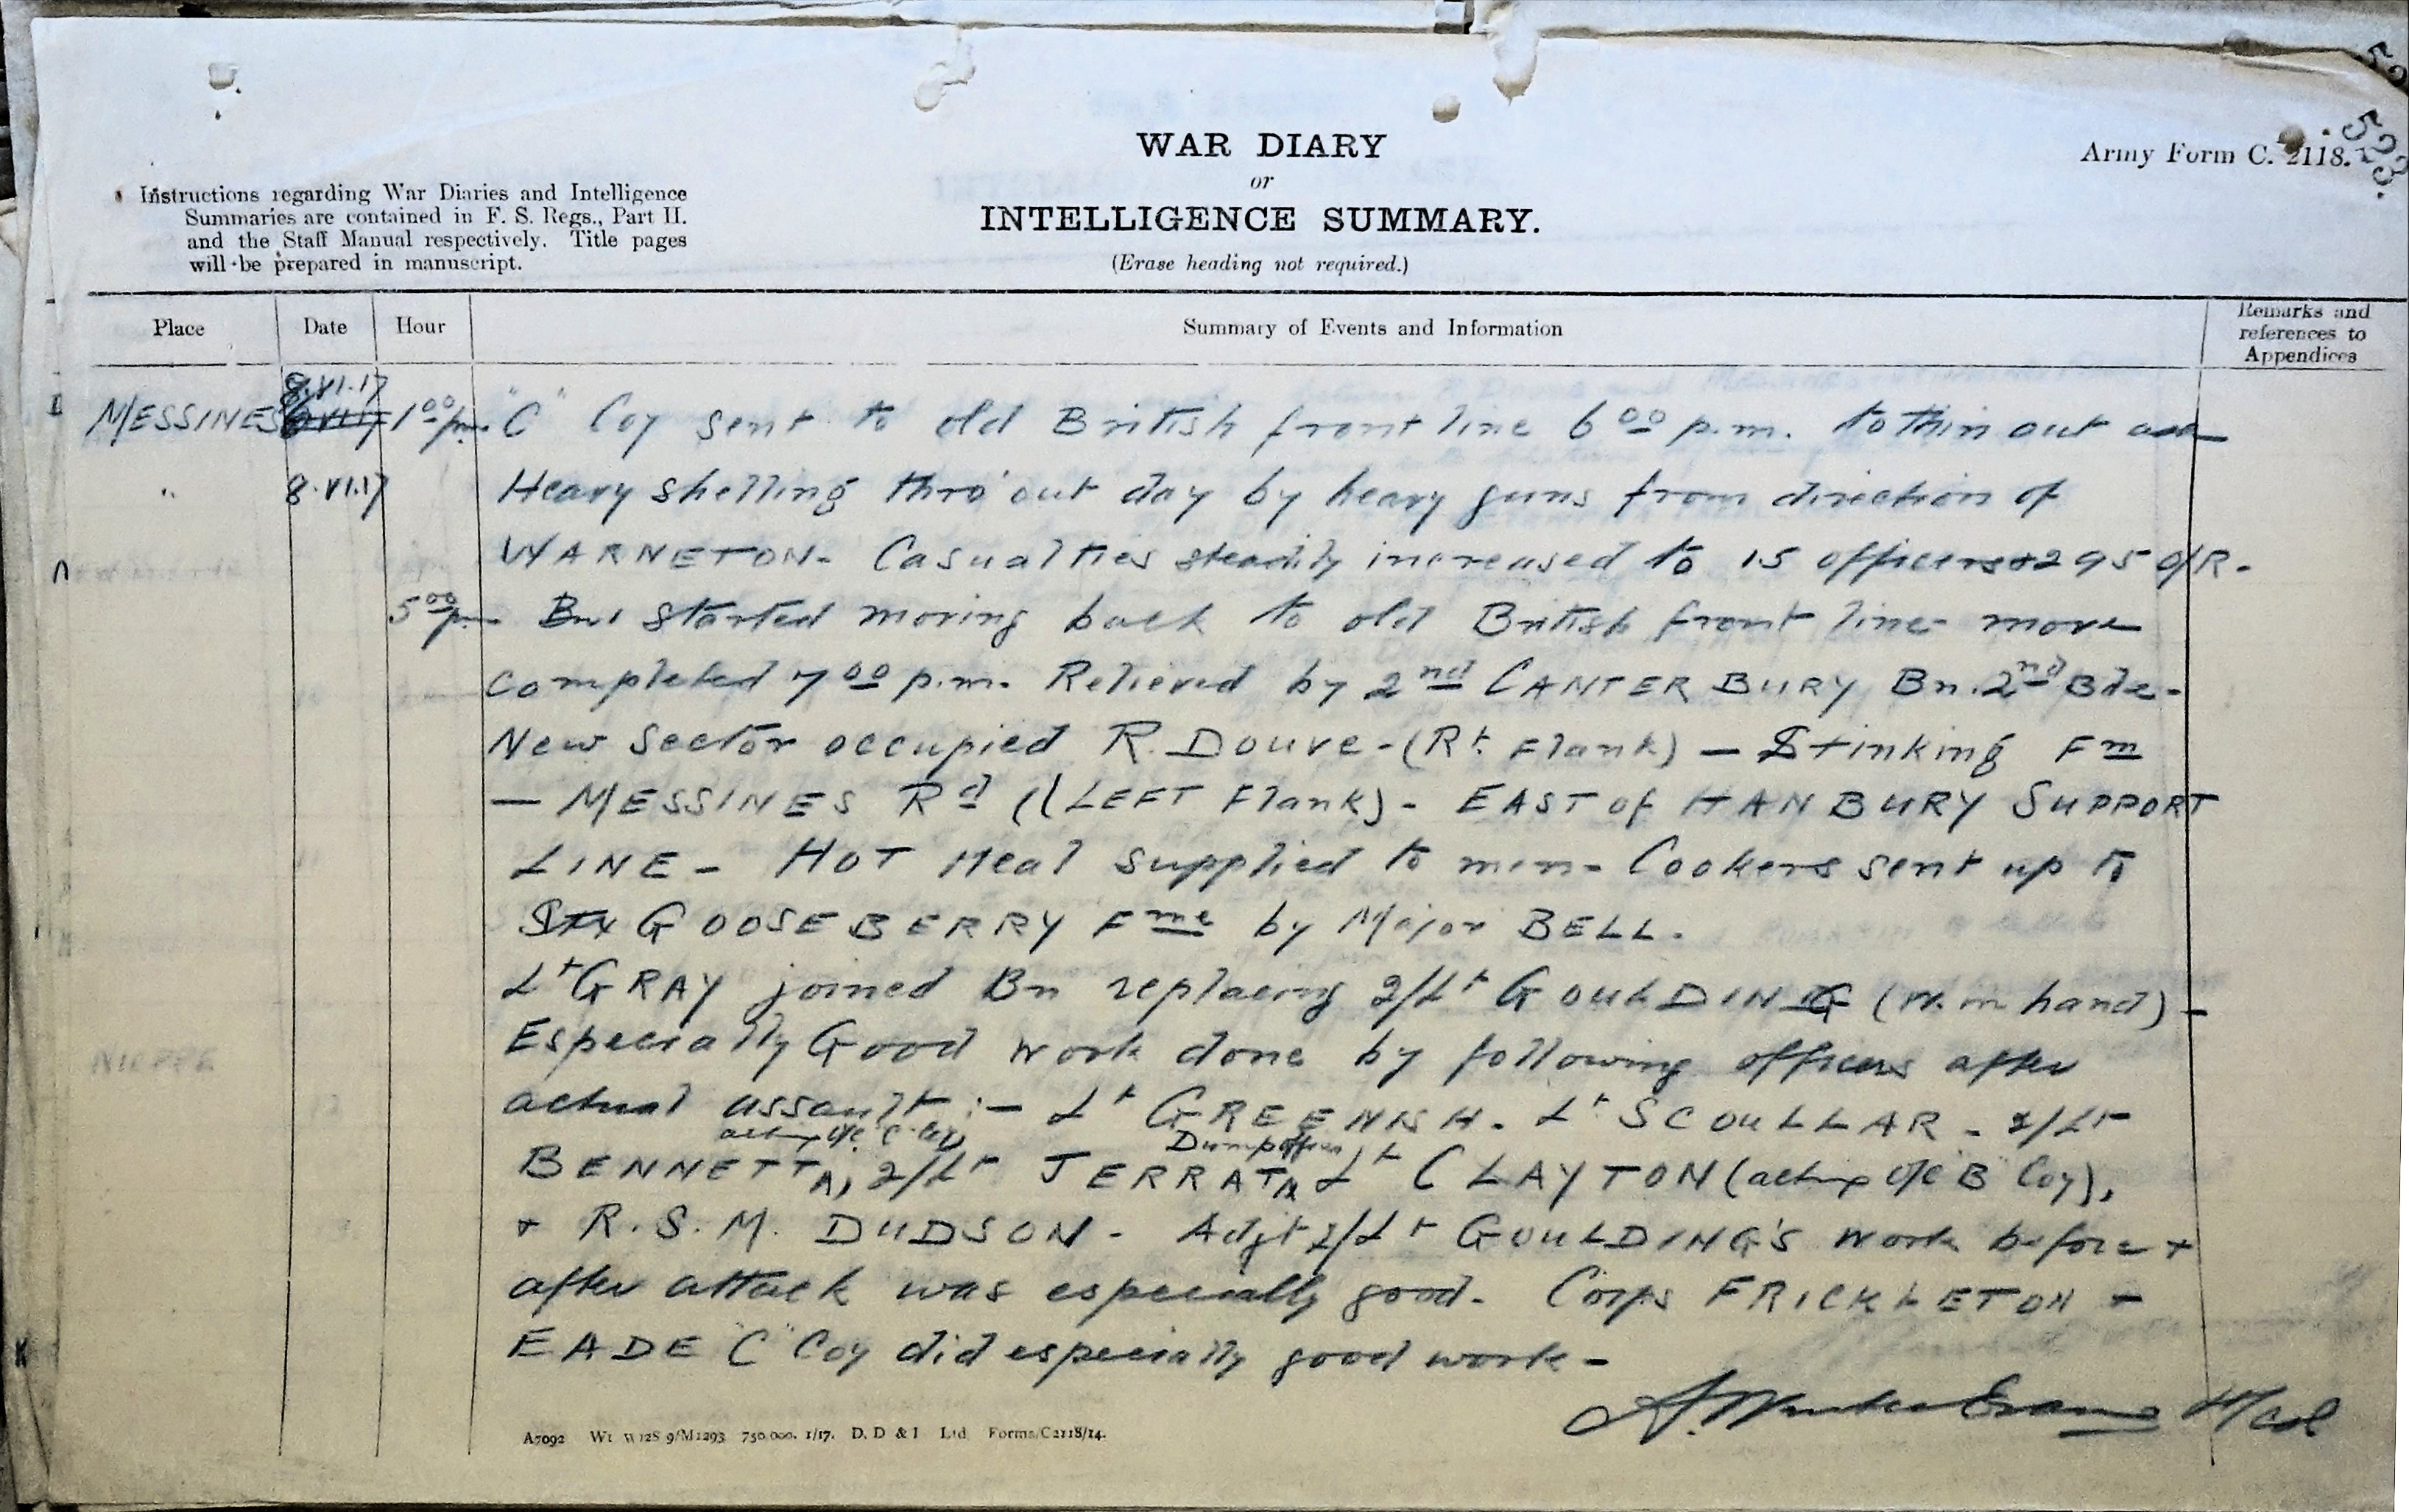 WAR DIARY
or
INTELLIGENCE SUMMARY.
(Erase heading not required.)
Army Form C. 2118.
523.
Instructions regarding War Diaries and Intelligence
Summaries are contained in F. S. Regs., Part II.
and the Staff Manual respectively. Title pages
will be prepared in manuscript.
Place Date Hour Summary of Events and Information Remarks and references to Appendices
8.VI.17
MESSINES 1 00 pm. "C" Coy sent to old British front line 6 00 p.m. to thin out
" 8.VI.17 Heavy shelling thro' out day by heavy guns from direction of
WARNETON - Casualties steadily increased to 15 officers + 295 O/R.
5 00 pm Bn started moving back to old British front line - move
completed 7 00 p.m. Relieved by 2nd CANTERBURY Bn. 2nd Bde -
New sector occupied R. Douve - (Rt. Flank) — Stinking Fm
— MESSINES Rd (LEFT Flank) - EAST of HANBURY SUPPORT
LINE - HOT Meal supplied to men - Cookers sent up to
GOOSEBERRY Fme by Major BELL.
Lt GRAY joined Bn replacing 2/Lt GOULDING (W. in hand) -
Especially Good work done by following officers after
actual assault :- Lt GREENISH. Lt SCOULLAR - 2/Lt
acting O/C "C" Coy Dump officer
BENNETT, 2/Lt JERRAT Lt CLAYTON (acting O/C B Coy),
+ R.S.M. DUDSON - Adjt 2/Lt GOULDING'S work before +
after attack was especially good. Corps FRICKLETON +
EADE "C" Coy did especially good work -
Lt/Col
A7092 Wt W128 9/M1293 750,000. 1/17. D. D & I Ltd Forms/C2118/14.
NIEPPE